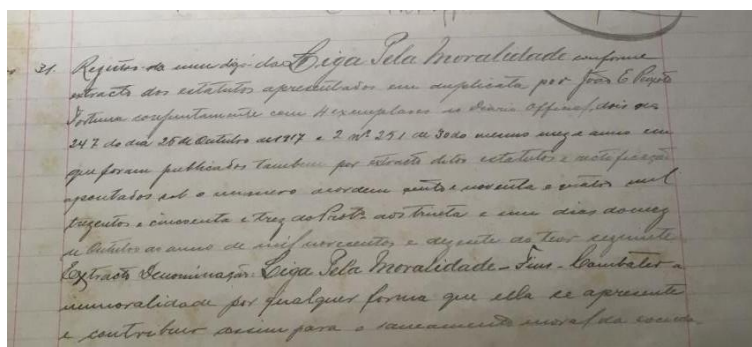 31. Registro de uma digo da Liga Pela Moralidade conforme
extracto dos estatutos apresentados em duplicata por João E Peixoto
Fortuna conjuntamente com 4 exemplares do Diario Official, dois
247 do dia 25 de Outubro de 1917 e 2 nº 251 de 30 do mesmo mez e anno em
que foram publicados tambem por extracto ditos estatutos e notificação
apontados sob o numero dordem cento e noventa e quatro mil
trezentos e cincoenta e trez do Protº aos trinta e um dias do mez
de Outubro do anno de mil novecentos e dezesete do teor seguinte
Extracto Denominação: Liga Pela Moralidade - Fins - Combater a
immoralidade por qualquer forma que ella se apresente
e contribuir assim para o saneamento moral da socieda